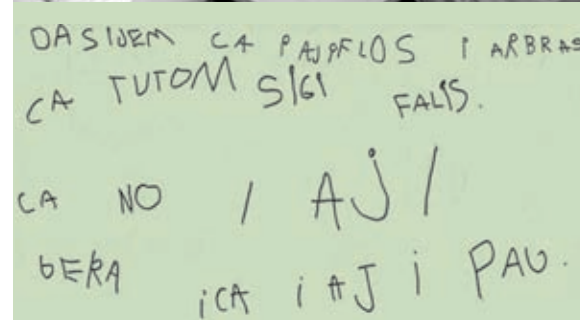 DASIJEM CA PAJPFLOS I ARBRAS
CA TUTOM SIGI FALIS.
CA NO I AJI
GERA iCA i AJ i PAU.